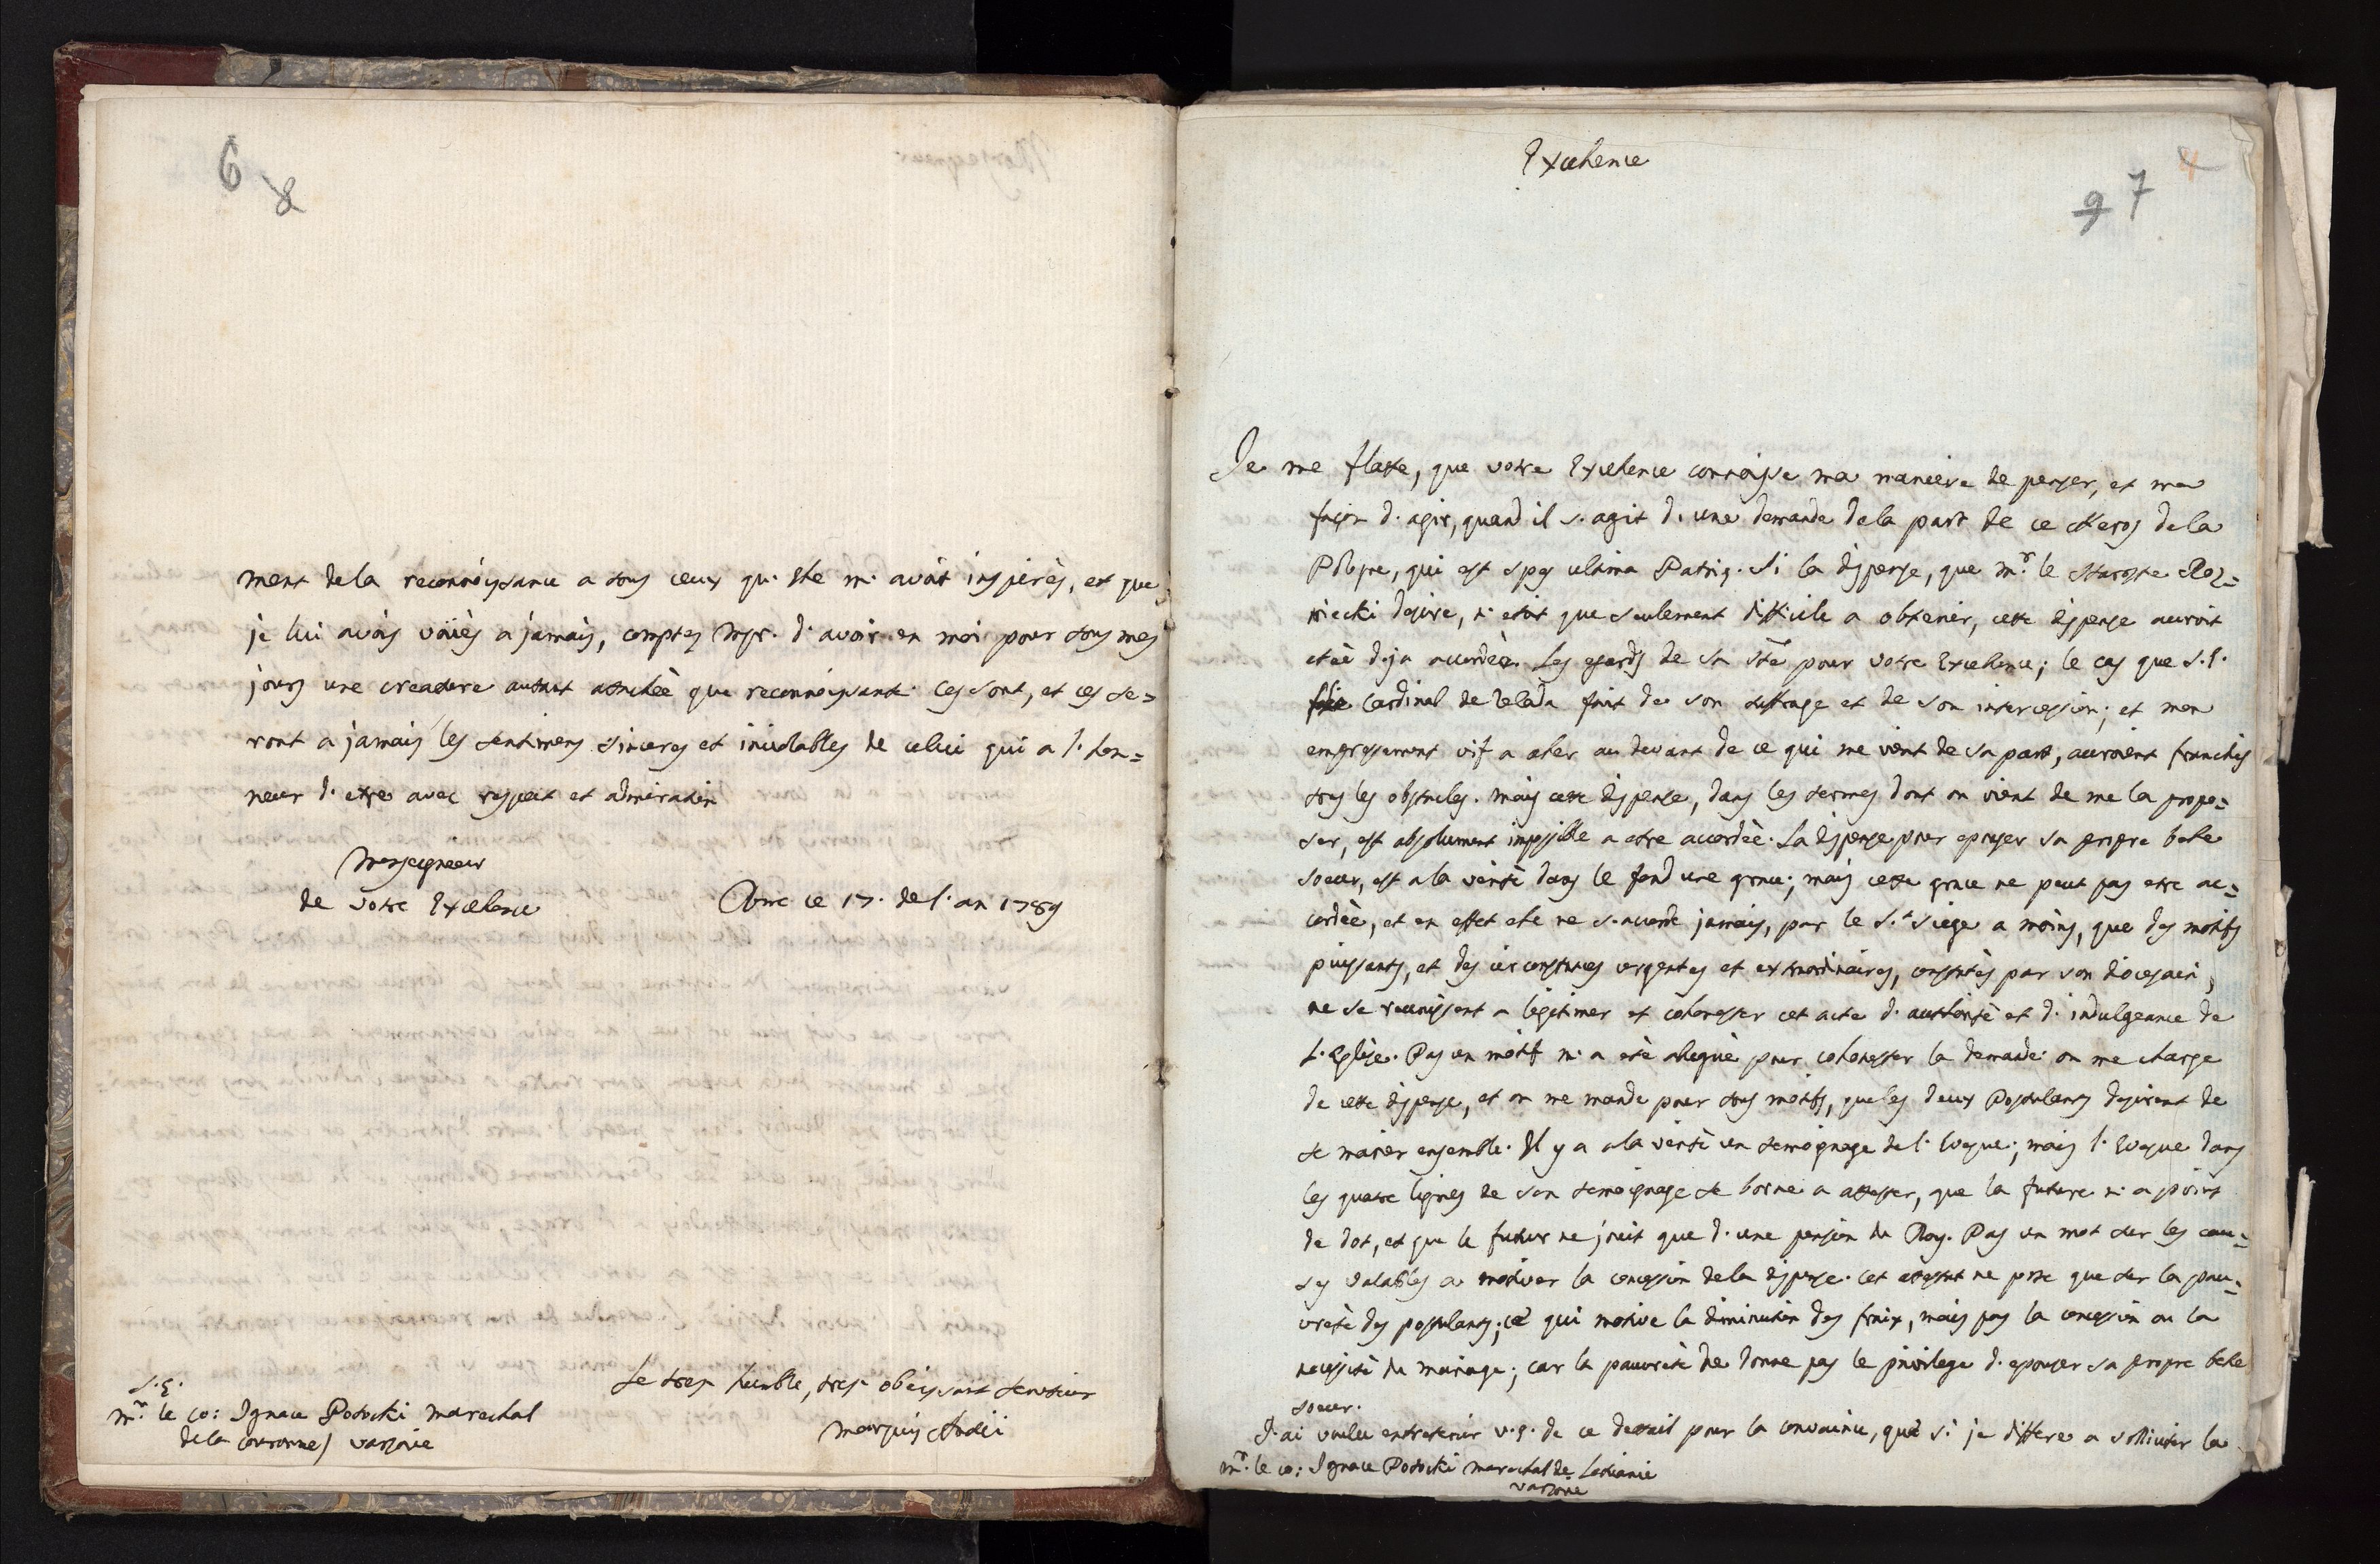 6
8
ment de la reconnoissance a tous ceux qu'Elle m'avoit inspirès, et que
je lui avois voüès a jamais, comptez Msgr. d'avoir en moi pour tous mes
jours une creature autant attachèe que reconnoissante. Ces sont, et ces se=
ront a jamais les sentimens sinceres et inviolables de celui qui a l'hon=
neur d'etre avec respect et admiration
Monseigneur
de Votre Excellence
Rome ce 17. de l'an 1789
Le tres humble, tres obeissant serviteur
Marquis Antici
S.E.
Mr. le co: Ignace Potocki marechal
de la couronne / Varsovie
Excellence
9 7
Je me flatte, que votre Excellence connoisse ma maniere de penser, et ma
façon d'agir, quand il s'agit d'une demande de la part de ce Heros de la
Pologne, qui est spes ultima Patriæ. Si la dispense, que Mr. le Staroste
desire, n'etoit que seulement difficile a obtenir, cette dispense auroit
etèe deja accordèe. Les egards de Sa Stè pour Votre Excellence; le cas que S.E.
Cardinal de fait de son suffrage et de son intercession; et mon
empressement vif a aller au devant de ce qui me vient de sa part, auroient franchis
tous les obstacles. Mais cette dispense, dans les termes dont on vient de me la propo=
ser, est absolument impossible a etre accordèe. La dispense pour epouser sa propre belle
soeur, est a la veritè dans le fond une grace; mais cette grace ne peut pas etre ac=
cordèe, et en effet elle ne s'accorde jamais, par le St. Siege a moins, que des motifs
puissants, et des circonstances urgentes et extraordinaires, constatès par son diocesain,
ne se reunissent a legitimer et cohonester cet acte d'authoritè et d'indulgeance de
l'Eglise. Pas un motif m'a etè alleguè pour cohonester la demande: on me charge
de cette dispense, et on me mande pour tous motifs, que les deux Postulants desirent de
se marier ensemble. Il y a a la veritè un temoignage de l'Eveque; mais l'Eveque dans
les quatre lignes de son temoignage se borne a attester, que la future n'a point
de dot, et que le futur ne jouit que d'une pension du Roy. Pas un mot sur les cau=
ses valables a motiver la concession de la dispense. Cet attestat ne pose que sur la pau=
vretè des postulants; ce qui motive la diminution des fraix, mais pas la concession ou la
necessitè du mariage; car la pauvretè ne donne pas le privilege d'epouser sa propre belle
soeur.
J'ai voulu entretenir V.E. de ce detail pour la convaincre, que si je differe a solliciter la
Mr. le co: Ignace Potocki Marechal de Lituanie
Varsovie